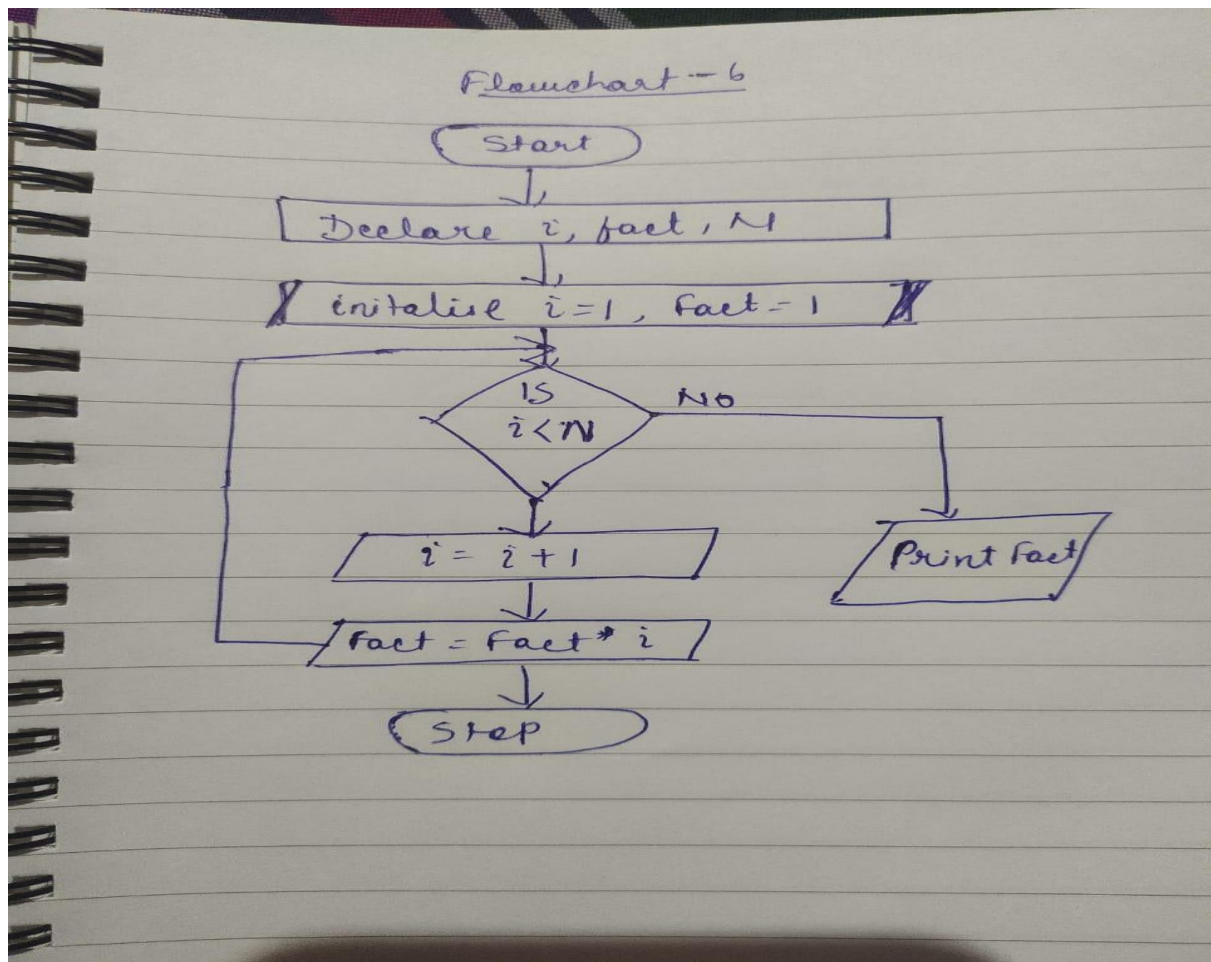 Flowchart - 6
Start
Declare i, fact, N
initalise i=1, Fact = 1
IS
i < N
NO
i = i + 1
Print Fact
Fact = Fact * i
Stop